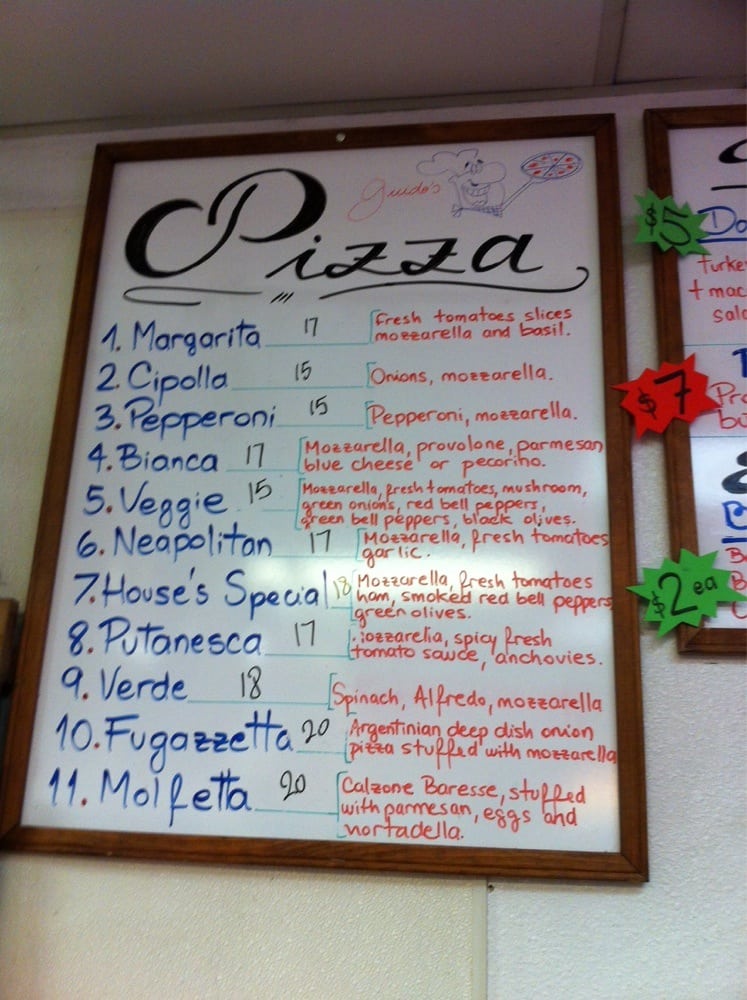 Guido's
Pizza
1. Margarita 17 Fresh tomatoes slices
mozzarella and basil.
2. Cipolla 15 Onions, mozzarella.
3. Pepperoni 15 Pepperoni, mozzarella.
4. Bianca 17 Mozzarella, provolone, parmesan
blue cheese or pecorino.
5. Veggie 15 Mozzarella, fresh tomatoes, mushroom,
green onions, red bell peppers,
green bell peppers, black olives.
6. Neapolitan 17 Mozzarella, fresh tomatoes
garlic.
7. House's Special 18 Mozzarella, fresh tomatoes
ham, smoked red bell peppers,
green olives.
8. Putanesca 17 mozzarella, spicy fresh
tomato sauce, anchovies.
9. Verde 18 Spinach, Alfredo, mozzarella
10. Fugazzetta 20 Argentinian deep dish onion
pizza stuffed with mozzarella
11. Molfetta 20 Calzone Baresse, stuffed
with parmesan, eggs and
mortadella.
$5
$7
$2 ea